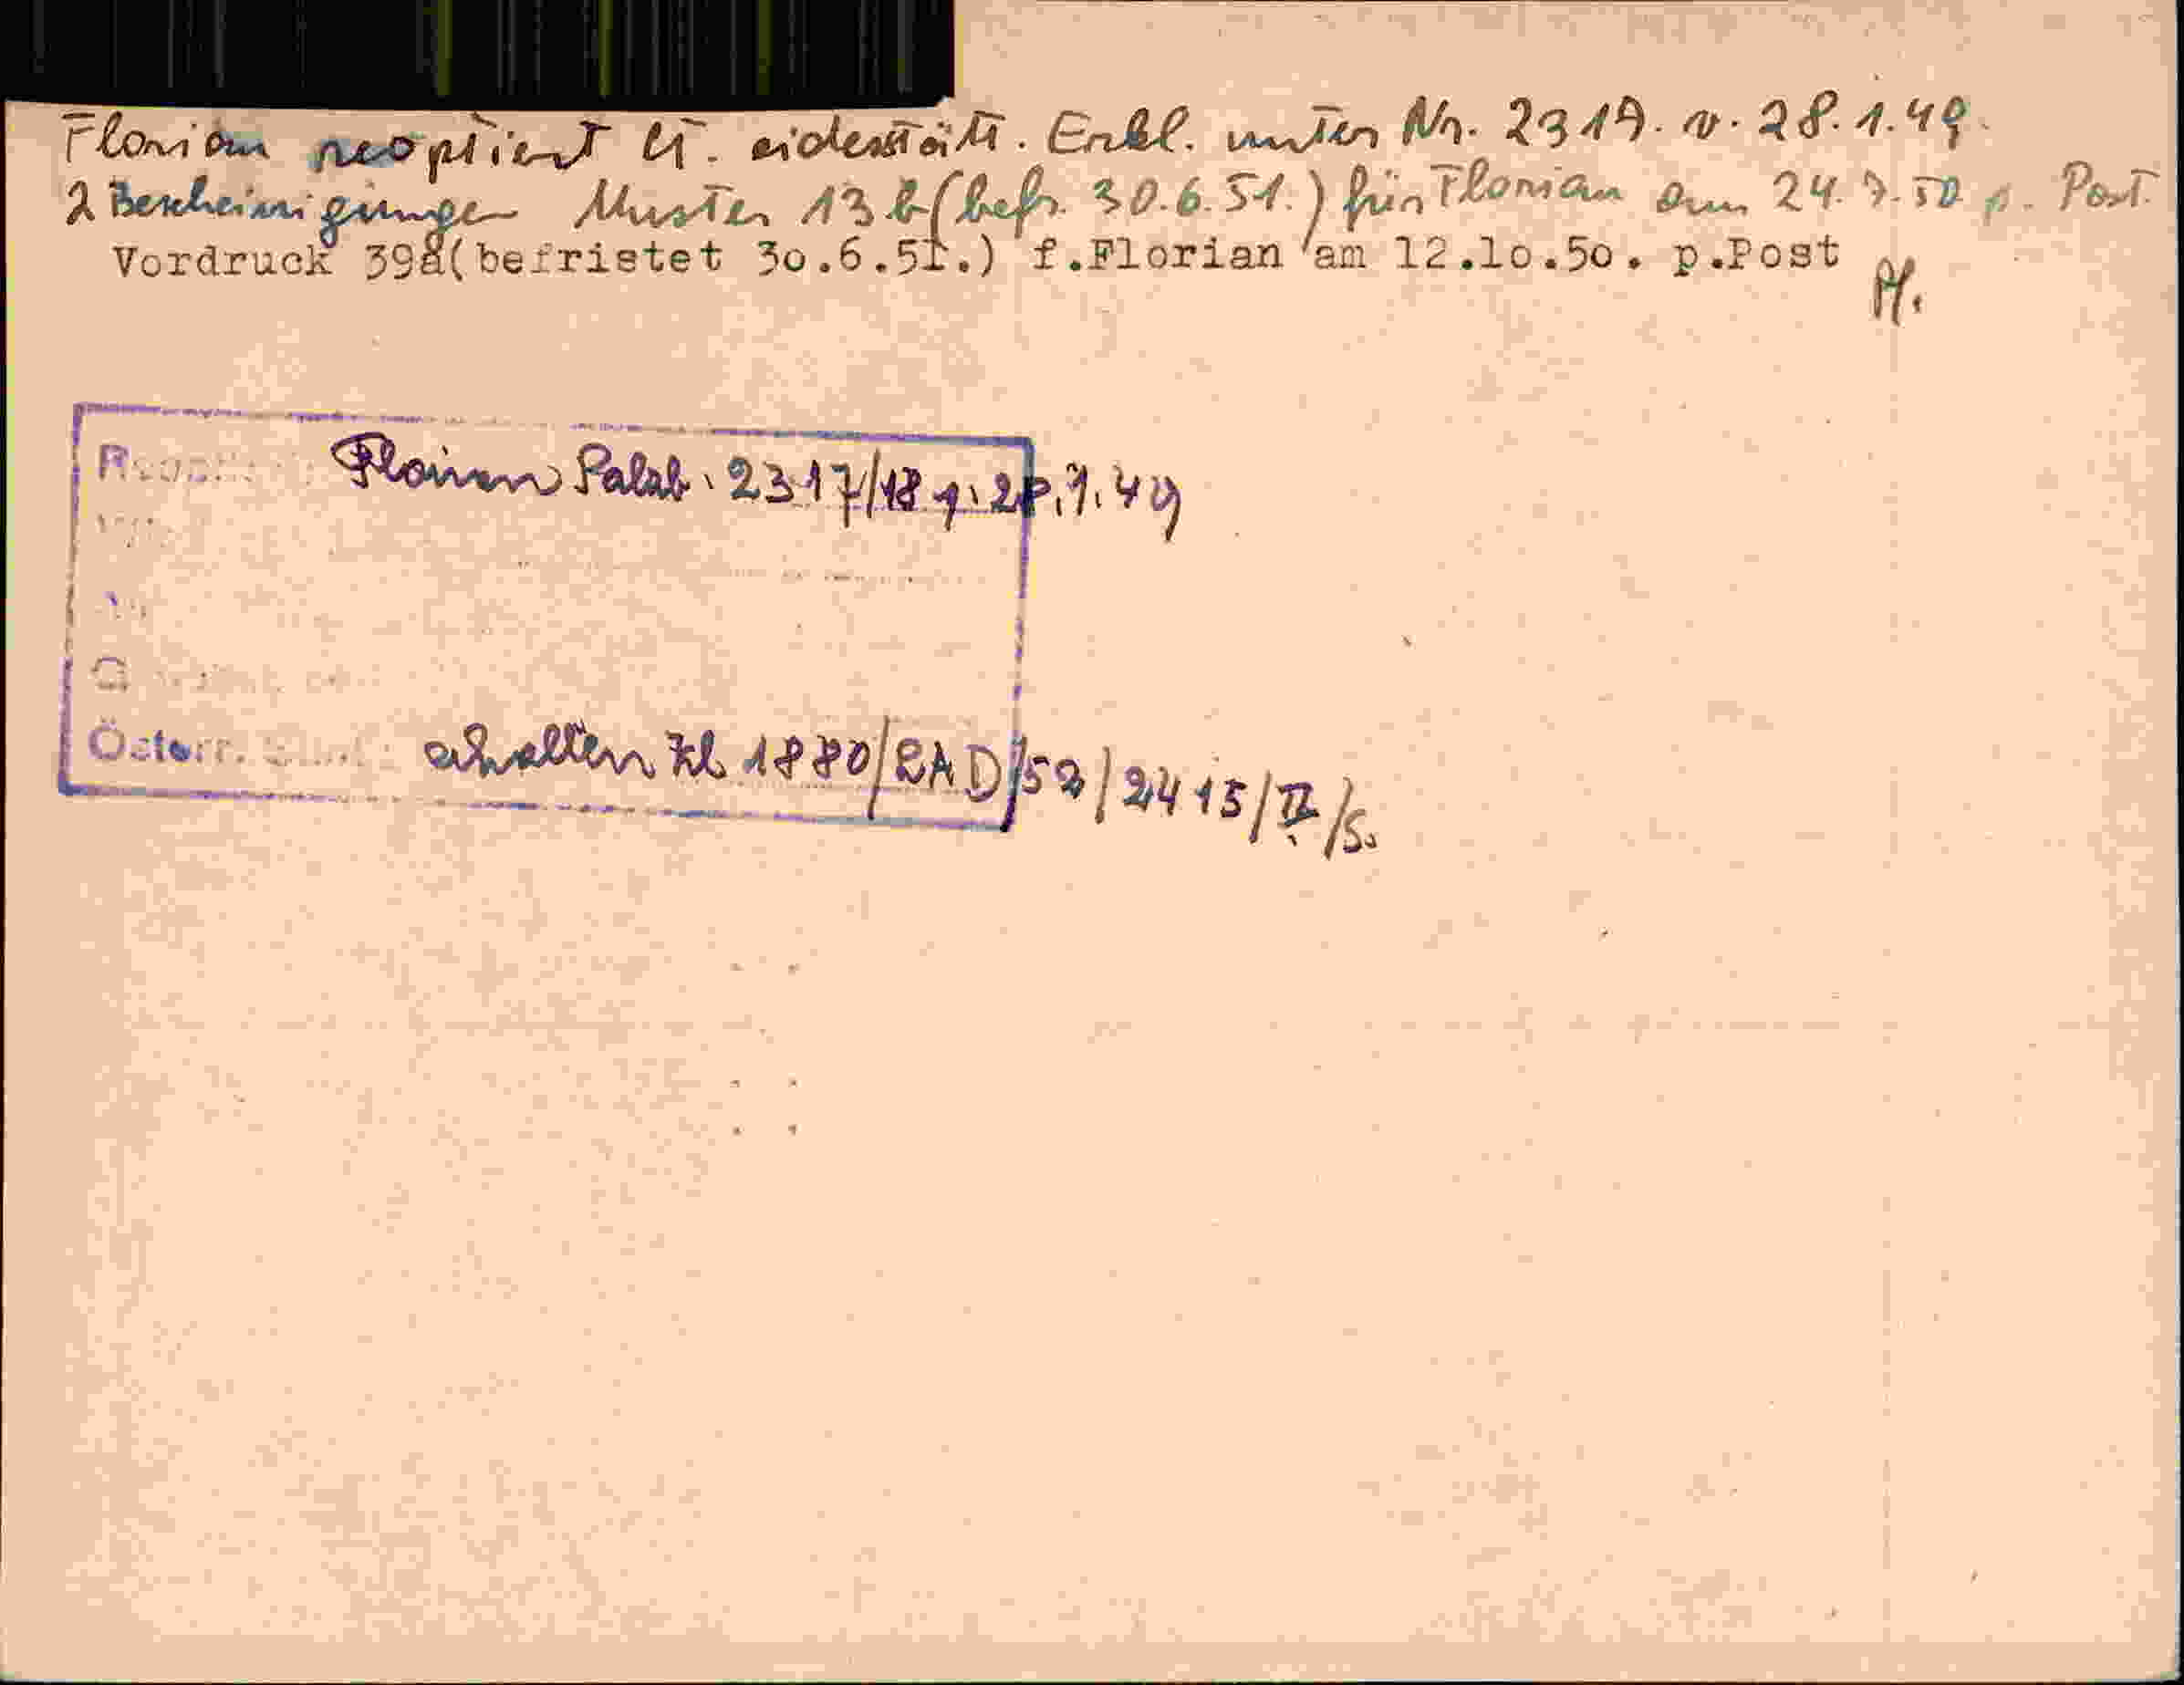 Florian reoptiert lt. eidesstätt. Erkl. unter Nr. 2317. v. 28.1.49.
2 Bescheinigungen Muster 13 b (befr. 30.6.51.) für Florian am 24.7.50 p. Post.
Vordruck 39a(befristet 3o.6.51.) f.Florian am 12.1o.5o. p.Post
Florian Salzb. 2317/18 v. 28.1.49
Österr. erhalten Zl 1880/RAD/52/2415/II/S.